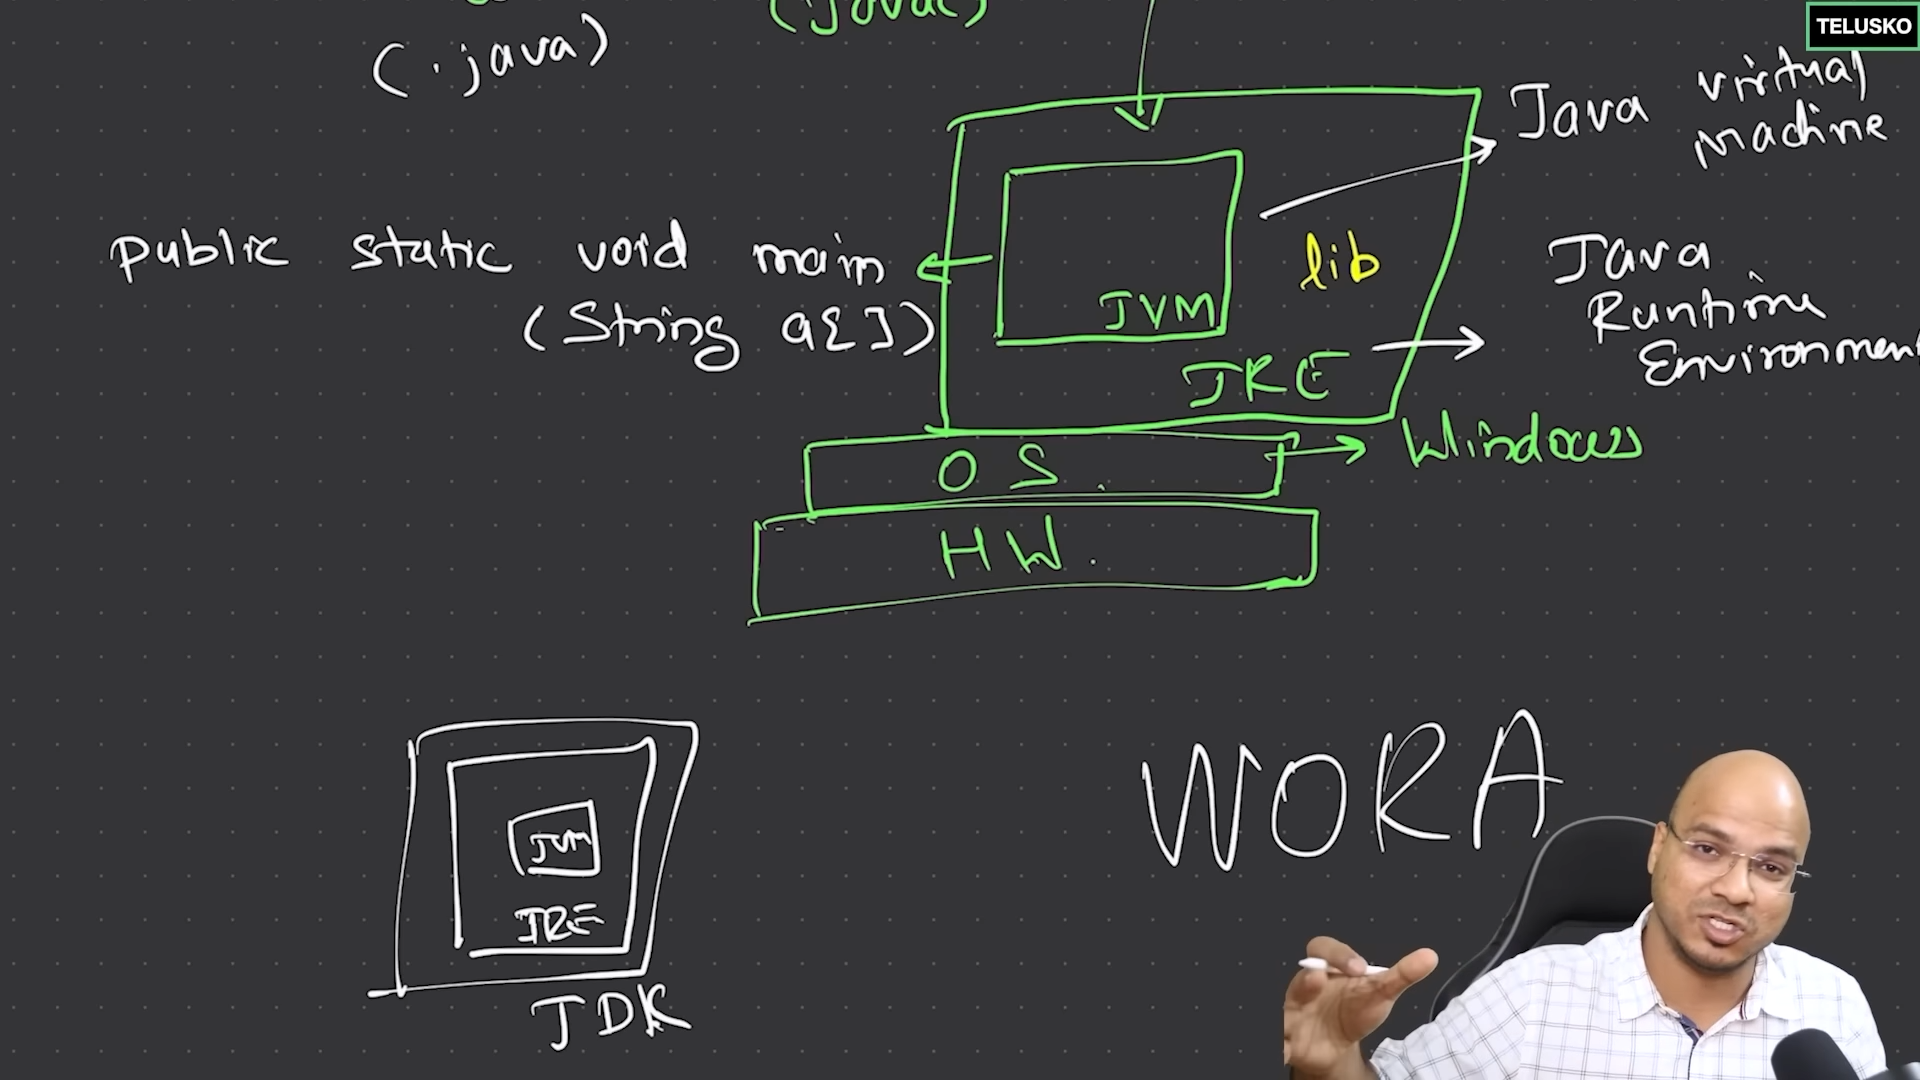 (javac)
TELUSKO
(.java)
Java Virtual
Machine
public static void main
(String a[])
lib
JVM
Java
Runtime
Environmen
JRE
OS.
Windows
HW.
JVM
JRE
JDK
WORA